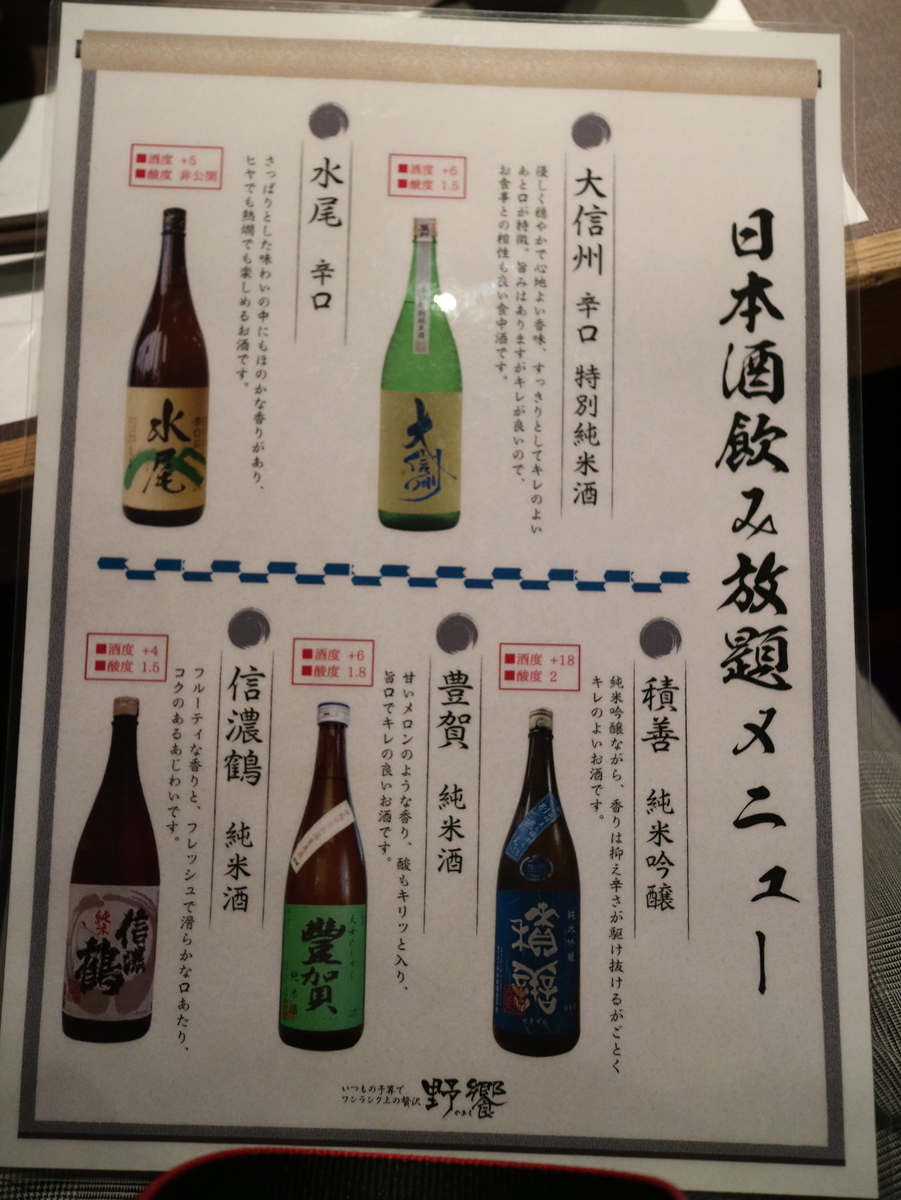 日本酒飲み放題メニュー
大信州 辛口 特別純米酒
優しく穏やかで心地よい香味、すっきりとしてキレのよい
あと口が特徴。旨みはありますがキレが良いので、
お食事との相性も良い食中酒です。
■酒度 +6
■酸度 1.5
大信州
水尾 辛口
さっぱりとした味わいの中にもほのかな香りがあり、
ヒヤでも熱燗でも楽しめるお酒です。
■酒度 +5
■酸度 非公開
水尾
積善 純米吟醸
純米吟醸ながら、香りは抑え辛さが駆け抜けるがごとく
キレのよいお酒です。
■酒度 +18
■酸度 2
積善
純米吟醸
豊賀 純米酒
甘いメロンのような香り、酸もキリッと入り、
旨口でキレの良いお酒です。
■酒度 +6
■酸度 1.8
豐賀
信濃鶴 純米酒
フルーティな香りと、フレッシュで滑らかな口あたり、
コクのあるあじわいです。
■酒度 +4
■酸度 1.5
信濃鶴
純米
いつもの予算で
ワンランク上の贅沢
野饗
のあえ